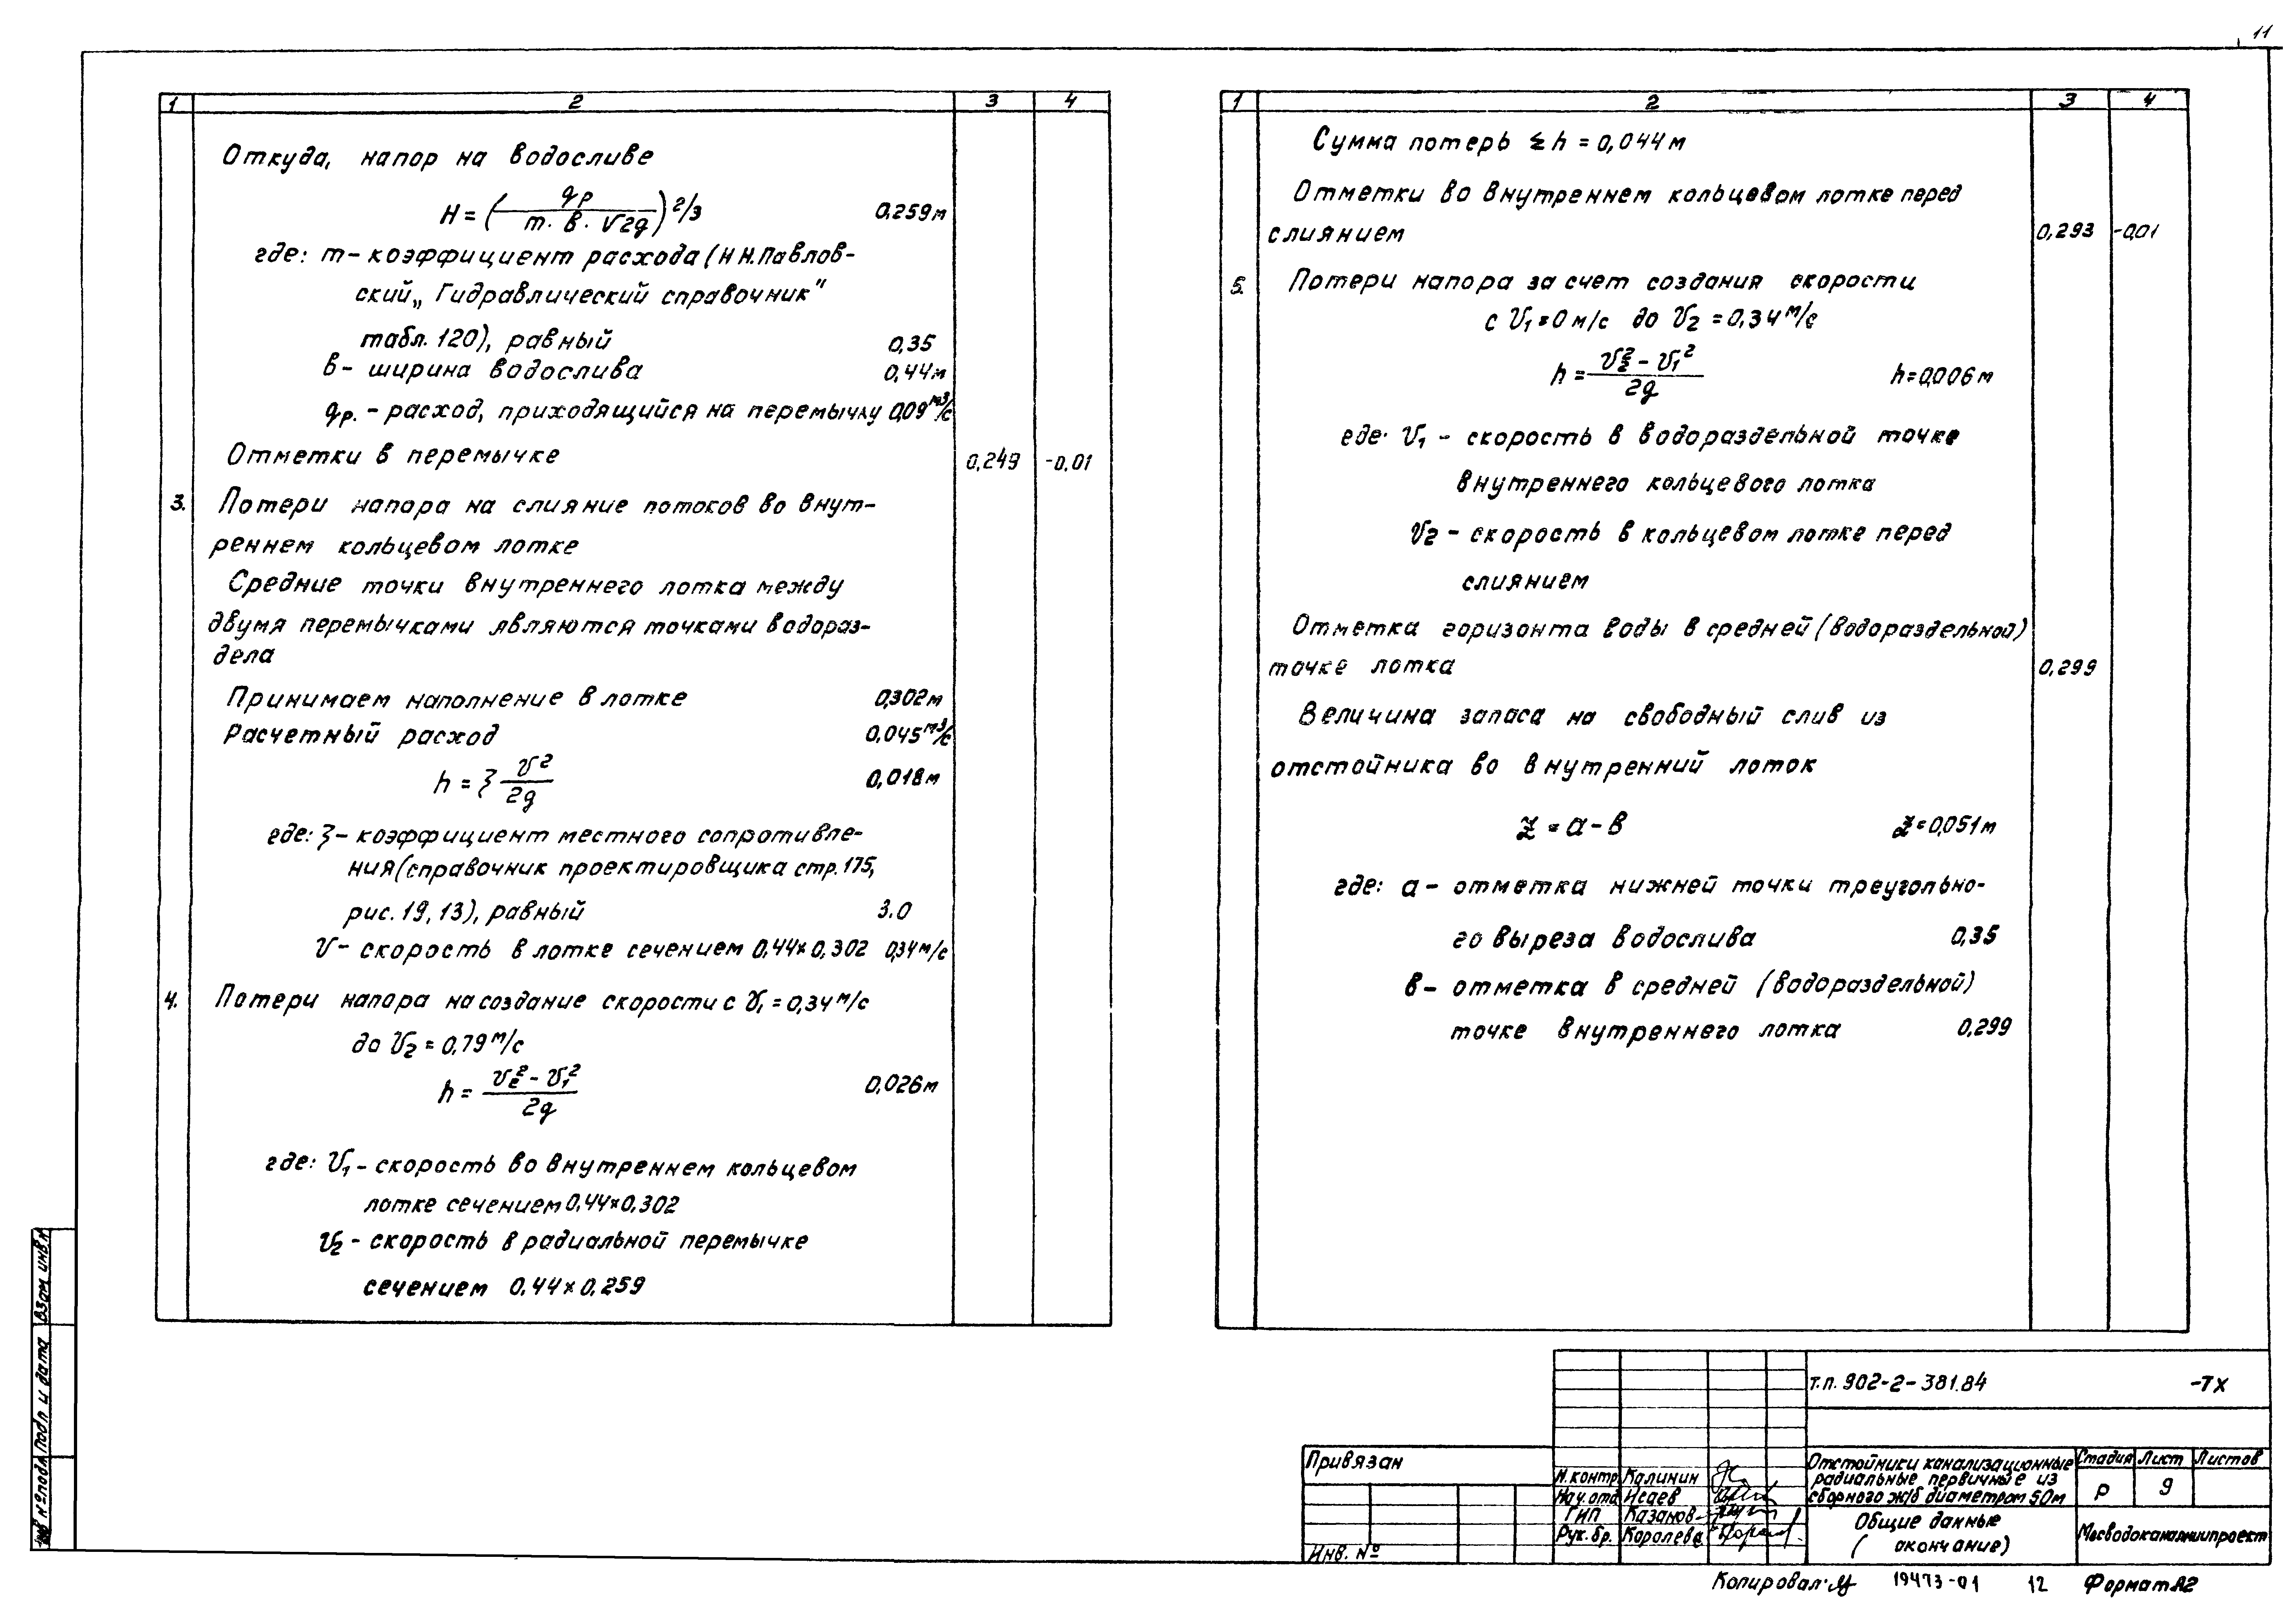 11
1 2 3 4
Откуда, напор на водосливе
H = ( qр / m · в · √2g ) 2/3 0,259м
где: m – коэффициент расхода (Н Н. Павлов-
ский „Гидравлический справочник"
табл. 120), равный 0,35
в – ширина водослива 0,44м
qр. – расход, приходящийся на перемычку 0,09 м3/с
Отметки в перемычке 0,249 -0,01
3. Потери напора на слияние потоков во внут-
реннем кольцевом лотке
Средние точки внутреннего лотка между
двумя перемычками являются точками водораз-
дела
Принимаем наполнение в лотке 0,302м
Расчетный расход 0,045 м3/с
h = ξ v² / 2g 0,018м
где: ξ – коэффициент местного сопротивле-
ния (справочник проектировщика стр. 175,
рис. 19, 13), равный 3.0
v – скорость в лотке сечением 0,44×0,302 0,34 м/с
4. Потери напора на создание скорости с v₁ = 0,34 м/с
до v₂ = 0,79 м/с
h = v₂² – v₁² / 2g 0,026м
где: v₁ – скорость во внутреннем кольцевом
лотке сечением 0,44×0,302
v₂ – скорость в радиальной перемычке
сечением 0,44×0,259
1 2 3 4
Сумма потерь Σh = 0,044м
Отметки во внутреннем кольцевом лотке перед
слиянием 0,293 -0,01
5. Потери напора за счет создания скорости
с v₁ = 0 м/с до v₂ = 0,34 м/с
h = v₂² – v₁² / 2g h = 0,006м
где: v₁ – скорость в водораздельной точке
внутреннего кольцевого лотка
v₂ – скорость в кольцевом лотке перед
слиянием
Отметка горизонта воды в средней (водораздельной)
точке лотка 0,299
Величина запаса на свободный слив из
отстойника во внутренний лоток
Z = a – в Z = 0,051м
где: a – отметка нижней точки треугольно-
го выреза водослива 0,35
в – отметка в средней (водораздельной)
точке внутреннего лотка 0,299
т.п. 902-2-381.84 -ТХ
Привязан
Инв. №
Н.контр Калинин
Нач.отд Исаев
ГИП Казанов
Рук. бр. Королева
Отстойники канализационные
радиальные первичные из
сборного ж/б диаметром 50м
Стадия Лист Листов
Р 9
Общие данные
(окончание)
Мосводоканалниипроект
Копировал: 19473-01 12 Формат А2
Инв № подл Подп и дата Взам инв.№